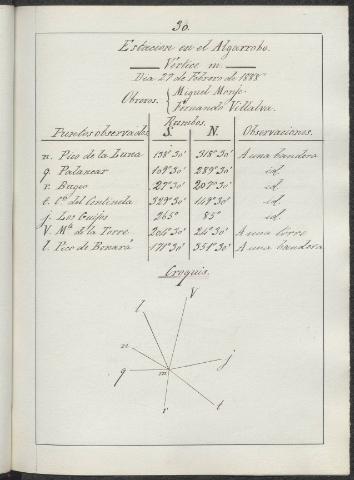 30.
Estacion en el Algarrobo.
Vértice m.
Dia 27 de Febrero de 1888
Obreros. { Miguel Monje.
Fernando Villalva.
Rumbos.
Puntos observados S. N. Observaciones.
n. Pico de la Luna 138°30' 318°30' A una bandera
q. Palancar 109°30' 289°30' id
r. Bugeo 27°30' 207°30' id
t. Cº del Centinela 329°30' 149°30' id
j. Los Guijos 265° 85° id
V. Mª de la Torre 204°30' 24°30' A una torre
l. Pico de Benará 171°30' 351°30' A una bandera
Croquis.
V
l
n
j
q
m
r
t